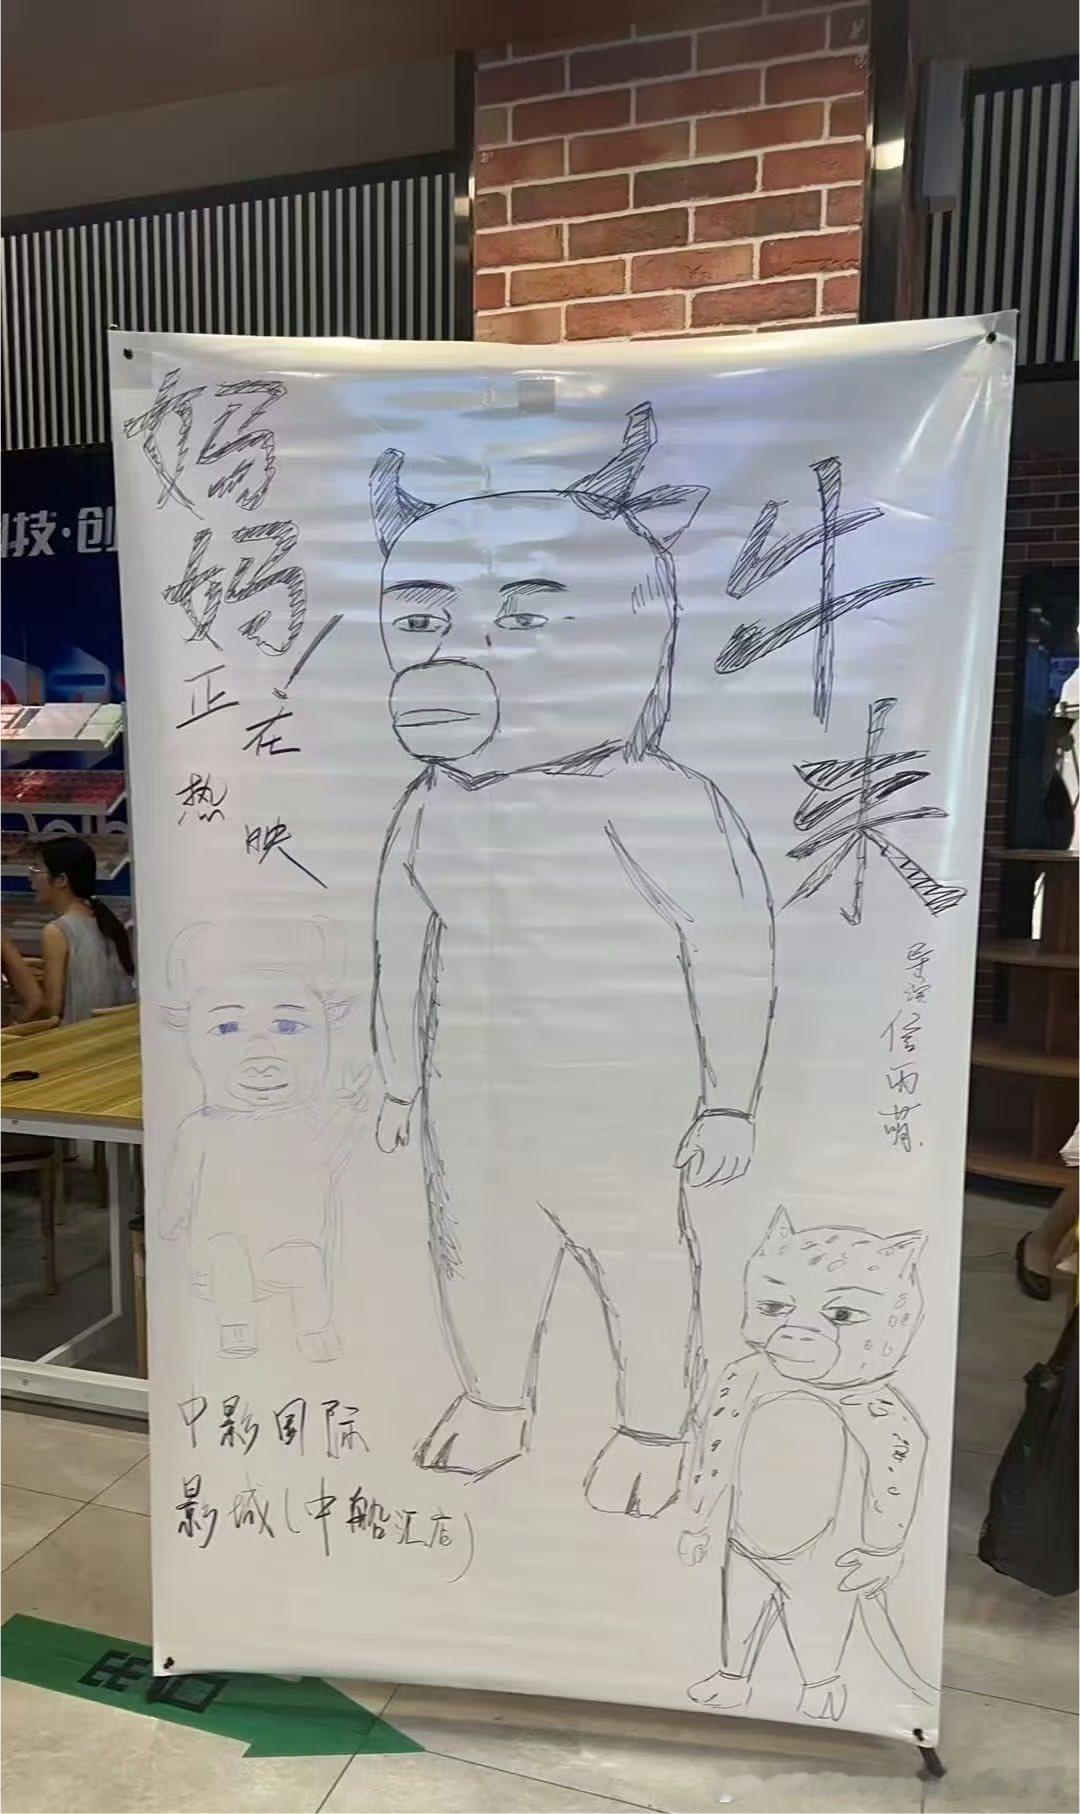 妈妈!
正在
热映
牛来
导演信雨萌
中影国际
影城(中船汇店)
科技·创
出口